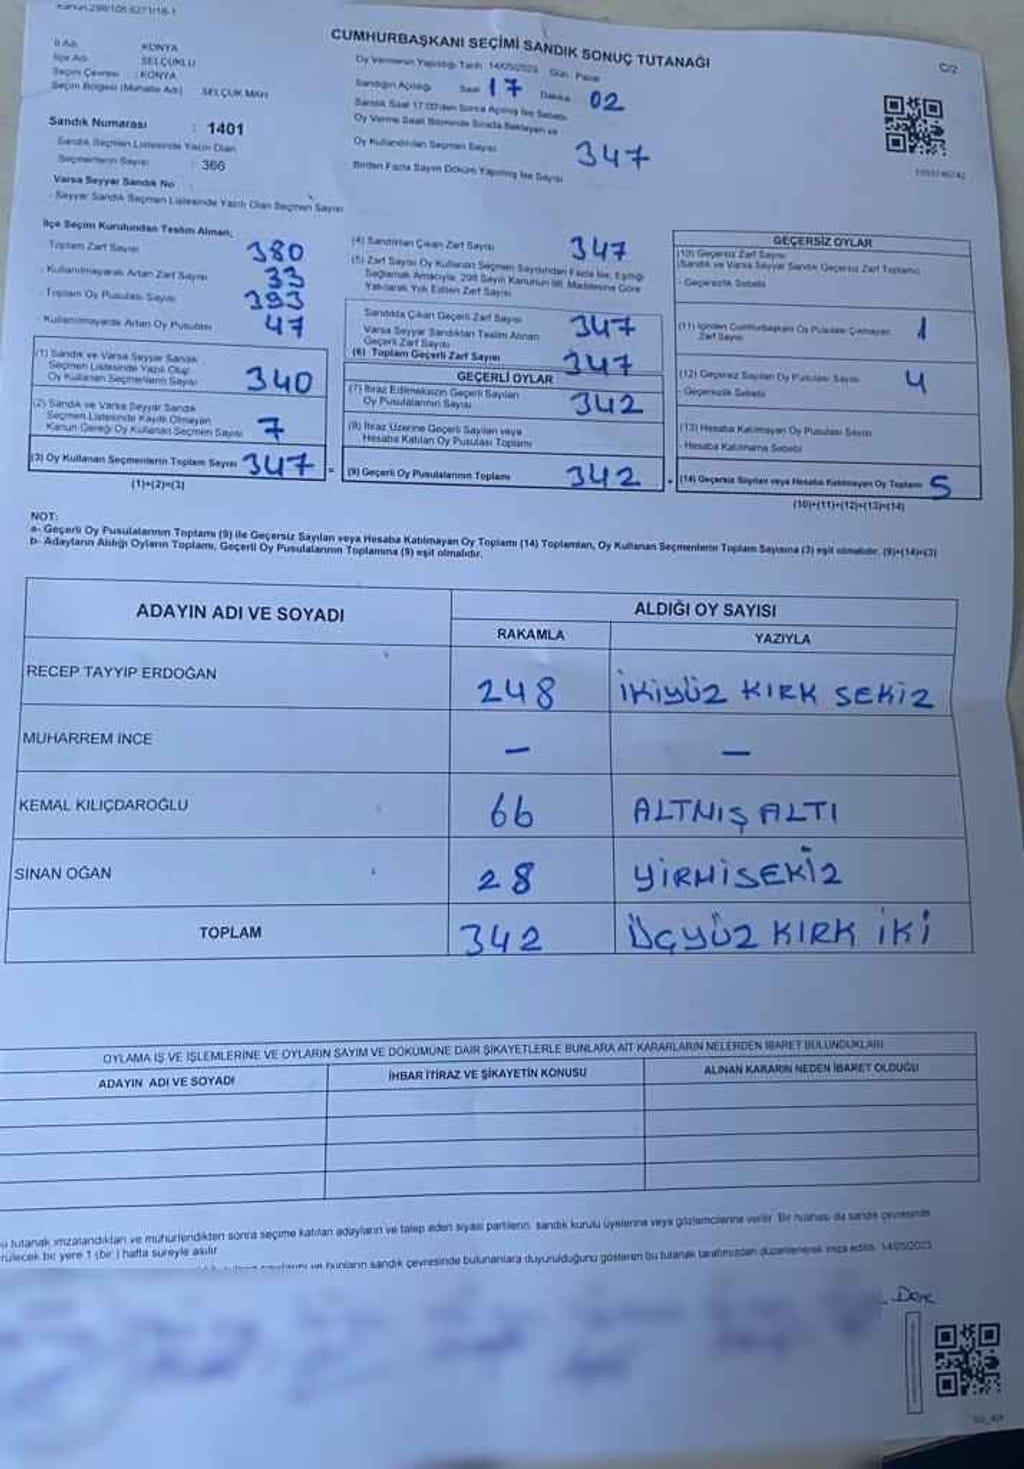 CUMHURBAŞKANI SEÇİMİ SANDIK SONUÇ TUTANAĞI
C/2
İl Adı : KONYA
İlçe Adı : SELÇUKLU
Seçim Çevresi : KONYA
Seçim Bölgesi (Mahalle Adı) SELÇUK MAH.
Sandık Numarası : 1401
Sandık Seçmen Listesinde Yazılı Olan
Seçmenlerin Sayısı : 366
Varsa Seyyar Sandık No
- Seyyar Sandık Seçmen Listesinde Yazılı Olan Seçmen Sayısı
Oy Vermenin Yapıldığı Tarih : 14/05/2023 Gün : Pazar
Sandığın Açılışı Saat 17 Dakika 02
Sandık Saat 17:00'den Sonra Açılmış İse Sebebi
Oy Verme Saati Bitiminde Sırada Bekleyen ve
Oy Kullandırılan Seçmen Sayısı 347
Birden Fazla Sayım Döküm Yapılmış İse Sayısı
İlçe Seçim Kurulundan Teslim Alınan;
- Toplam Zarf Sayısı 380
- Kullanılmayarak Artan Zarf Sayısı 33
- Toplam Oy Pusulası Sayısı 393
- Kullanılmayarak Artan Oy Pusulası 47
(1) Sandık ve Varsa Seyyar Sandık
Seçmen Listesinde Yazılı Olup
Oy Kullanan Seçmenlerin Sayısı 340
(2) Sandık ve Varsa Seyyar Sandık
Seçmen Listesinde Kayıtlı Olmayan
Kanun Gereği Oy Kullanan Seçmen Sayısı 7
(3) Oy Kullanan Seçmenlerin Toplam Sayısı 347
(1)+(2)=(3)
(4) Sandıktan Çıkan Zarf Sayısı 347
(5) Zarf Sayısı Oy Kullanan Seçmen Sayısından Fazla İse, Eşitliği
Sağlamak Amacıyla, 298 Sayılı Kanunun 98. Maddesine Göre
Yakılarak Yok Edilen Zarf Sayısı
Sandıkta Çıkan Geçerli Zarf Sayısı 347
Varsa Seyyar Sandıktan Teslim Alınan
Geçerli Zarf Sayısı
(6) Toplam Geçerli Zarf Sayısı 347
GEÇERLİ OYLAR
(7) İtiraz Edilmeksizin Geçerli Sayılan
Oy Pusulalarının Sayısı 342
(8) İtiraz Üzerine Geçerli Sayılan veya
Hesaba Katılan Oy Pusulası Toplamı
(9) Geçerli Oy Pusulalarının Toplamı 342
GEÇERSİZ OYLAR
(10) Geçersiz Zarf Sayısı
(Sandık ve Varsa Seyyar Sandık Geçersiz Zarf Toplamı)
- Geçersizlik Sebebi
(11) İçinden Cumhurbaşkanı Oy Pusulası Çıkmayan
Zarf Sayısı 1
(12) Geçersiz Sayılan Oy Pusulası Sayısı 4
- Geçersizlik Sebebi
(13) Hesaba Katılmayan Oy Pusulası Sayısı
- Hesaba Katılmama Sebebi
(14) Geçersiz Sayılan veya Hesaba Katılmayan Oy Toplamı 5
(10)+(11)+(12)+(13)=(14)
NOT:
a- Geçerli Oy Pusulalarının Toplamı (9) ile Geçersiz Sayılan veya Hesaba Katılmayan Oy Toplamı (14) Toplamları, Oy Kullanan Seçmenlerin Toplam Sayısına (3) eşit olmalıdır. (9)+(14)=(3)
b- Adayların Aldığı Oyların Toplamı, Geçerli Oy Pusulalarının Toplamına (9) eşit olmalıdır.
ADAYIN ADI VE SOYADI
ALDIĞI OY SAYISI
RAKAMLA YAZIYLA
RECEP TAYYIP ERDOĞAN 248 İKİYÜZ KIRK SEKİZ
MUHARREM İNCE – –
KEMAL KILIÇDAROĞLU 66 ALTMIŞ ALTI
SİNAN OĞAN 28 YİRMİSEKİZ
TOPLAM 342 ÜÇYÜZ KIRK İKİ
OYLAMA İŞ VE İŞLEMLERİNE VE OYLARIN SAYIM VE DÖKÜMÜNE DAİR ŞİKAYETLERLE BUNLARA AİT KARARLARIN NELERDEN İBARET BULUNDUKLARI
ADAYIN ADI VE SOYADI İHBAR İTİRAZ VE ŞİKAYETİN KONUSU ALINAN KARARIN NEDEN İBARET OLDUĞU
tutanak imzalandıktan ve mühürlendikten sonra seçime katılan adayların ve talep eden siyasi partilerin, sandık kurulu üyelerine veya gözlemcilerine verilir. Bir nüshası da sandık çevresinde
bir yere 1 (bir) hafta süreyle asılır.
bunların sandık çevresinde bulunanlara duyurulduğunu gösteren bu tutanak tarafımızdan düzenlenerek imza edildi. 14/05/2023